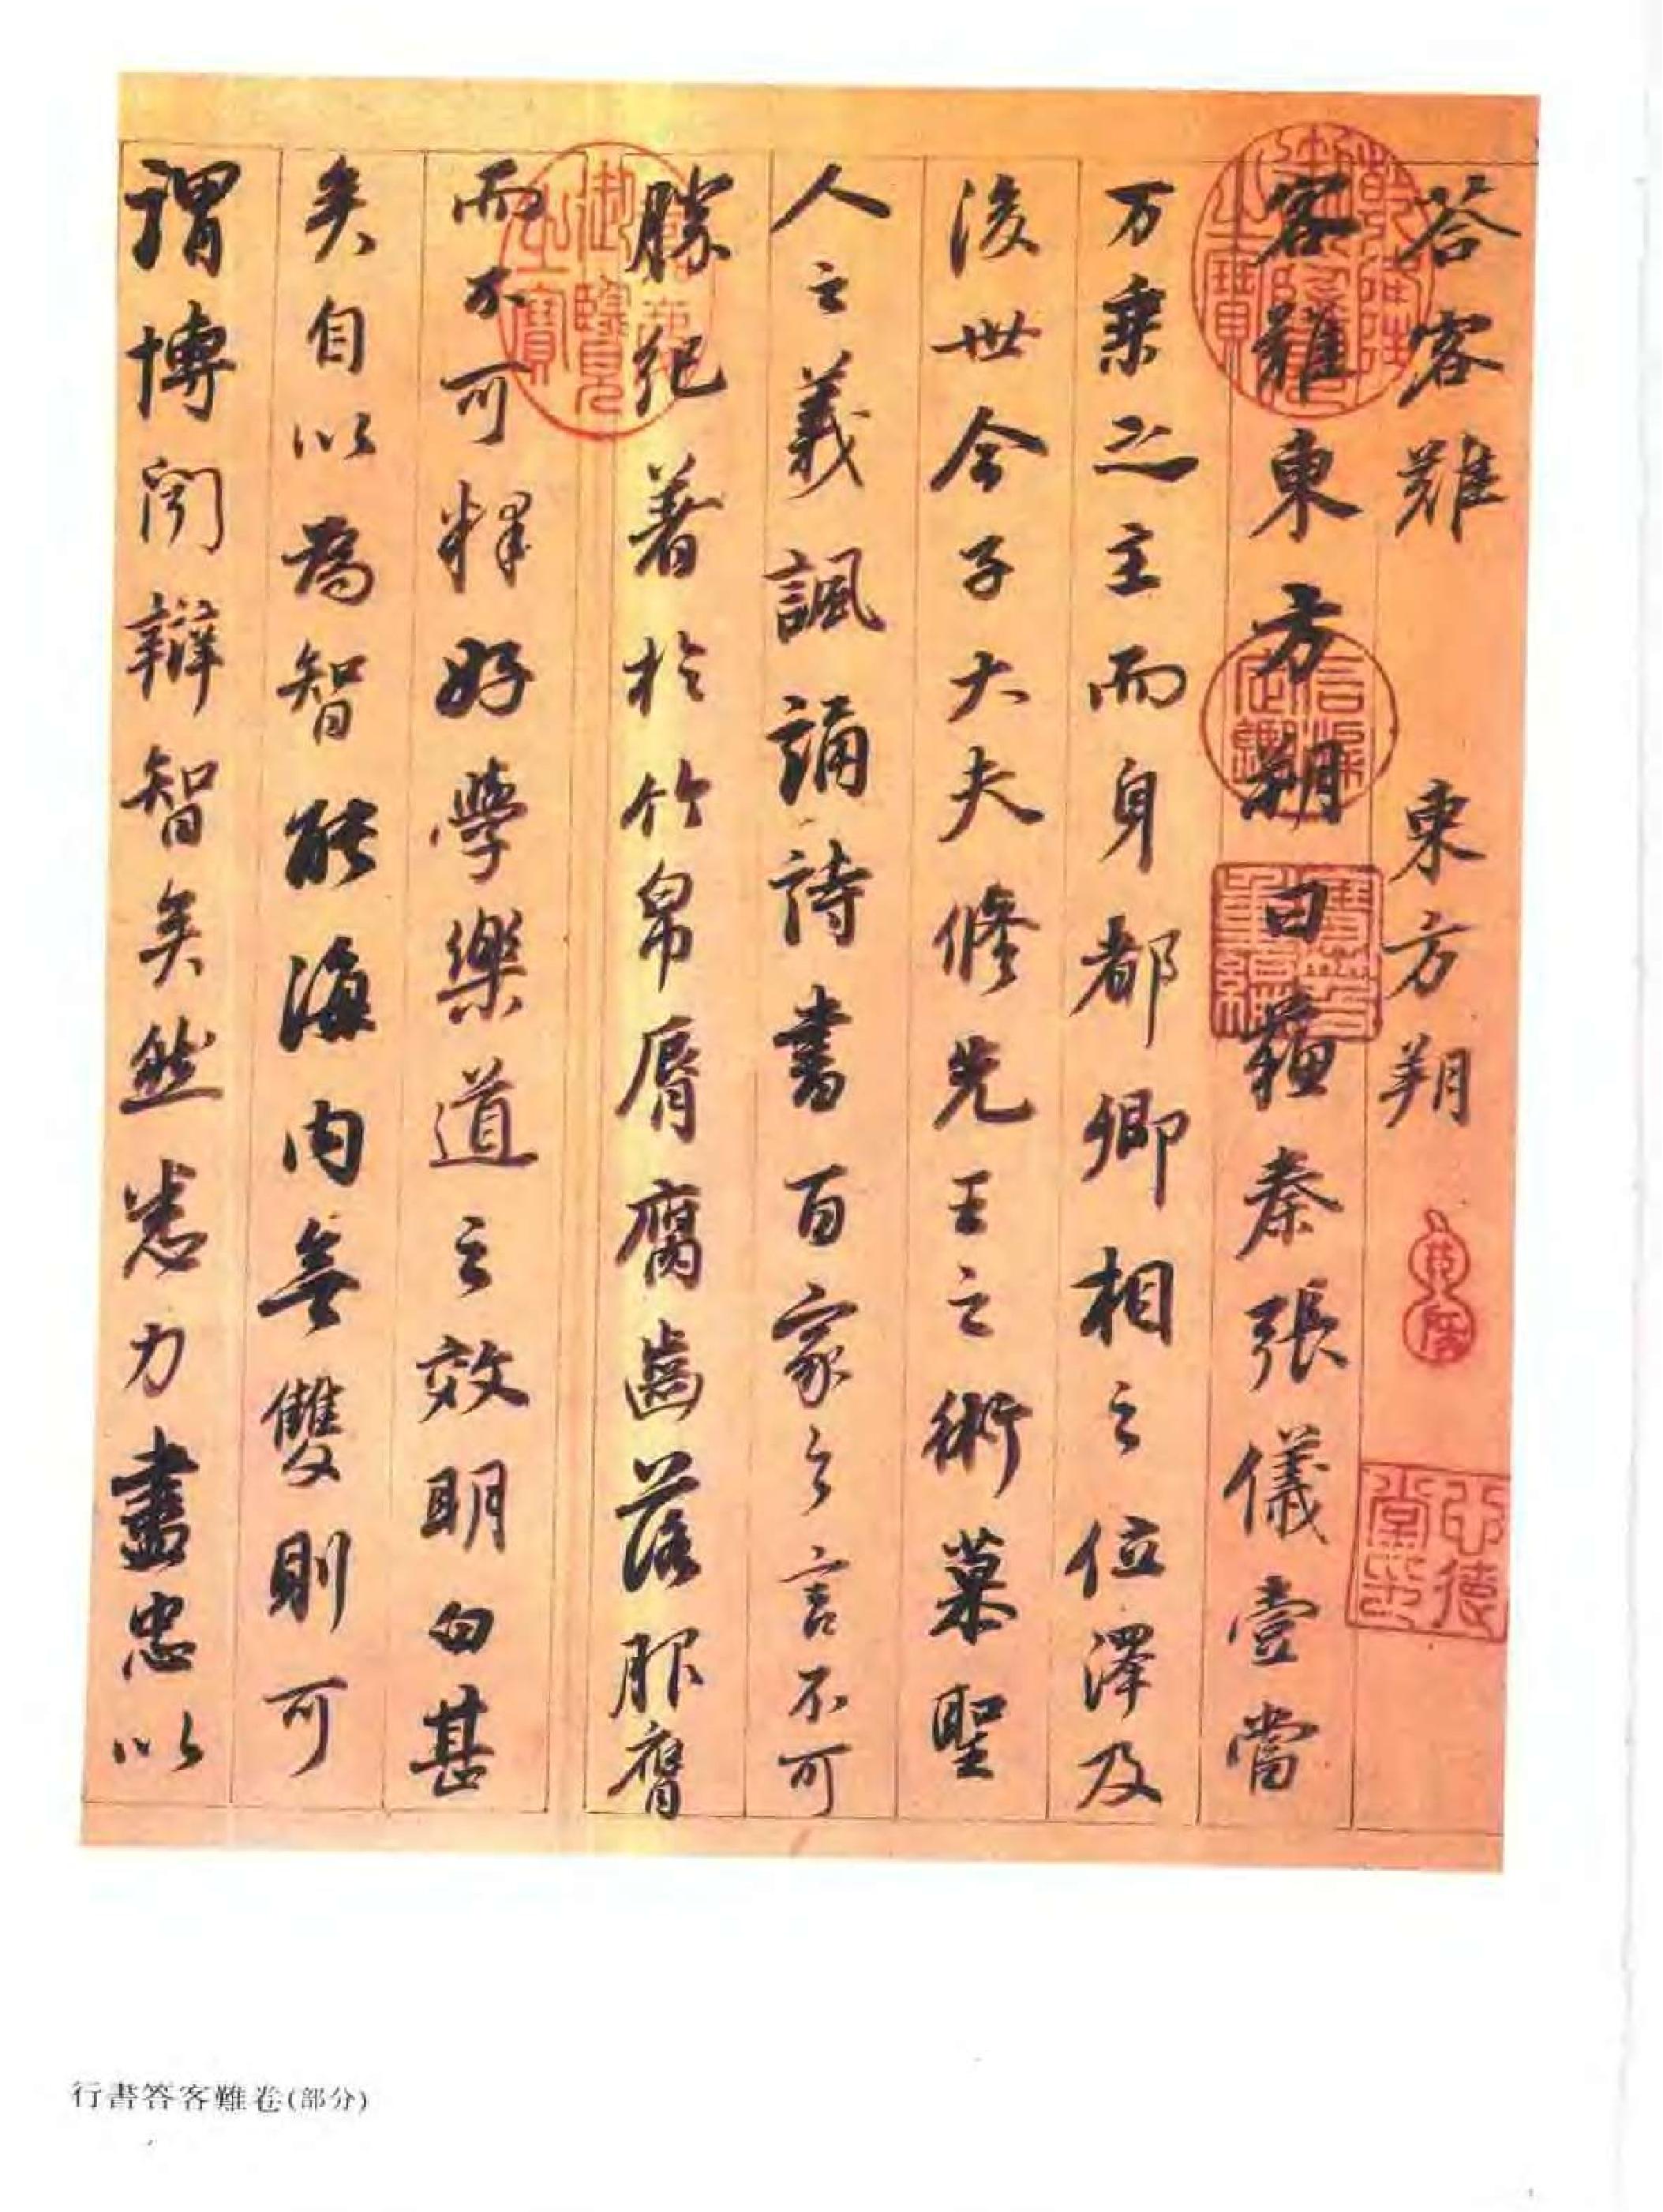 答客難 東方朔
客難東方朔曰蘇秦張儀壹當
万乗之主而身都卿相之位澤及
後世今子大夫修先王之術慕聖
人之義諷誦詩書百家之言不可
勝紀著於竹帛脣腐齒落服膺
而不可釋好學樂道之效明白甚
矣自以為智能海内無雙則可
謂博聞辯智矣然悉力盡忠以
乾隆御覽之寶
嘉慶御覽之寶
行書答客難卷(部分)